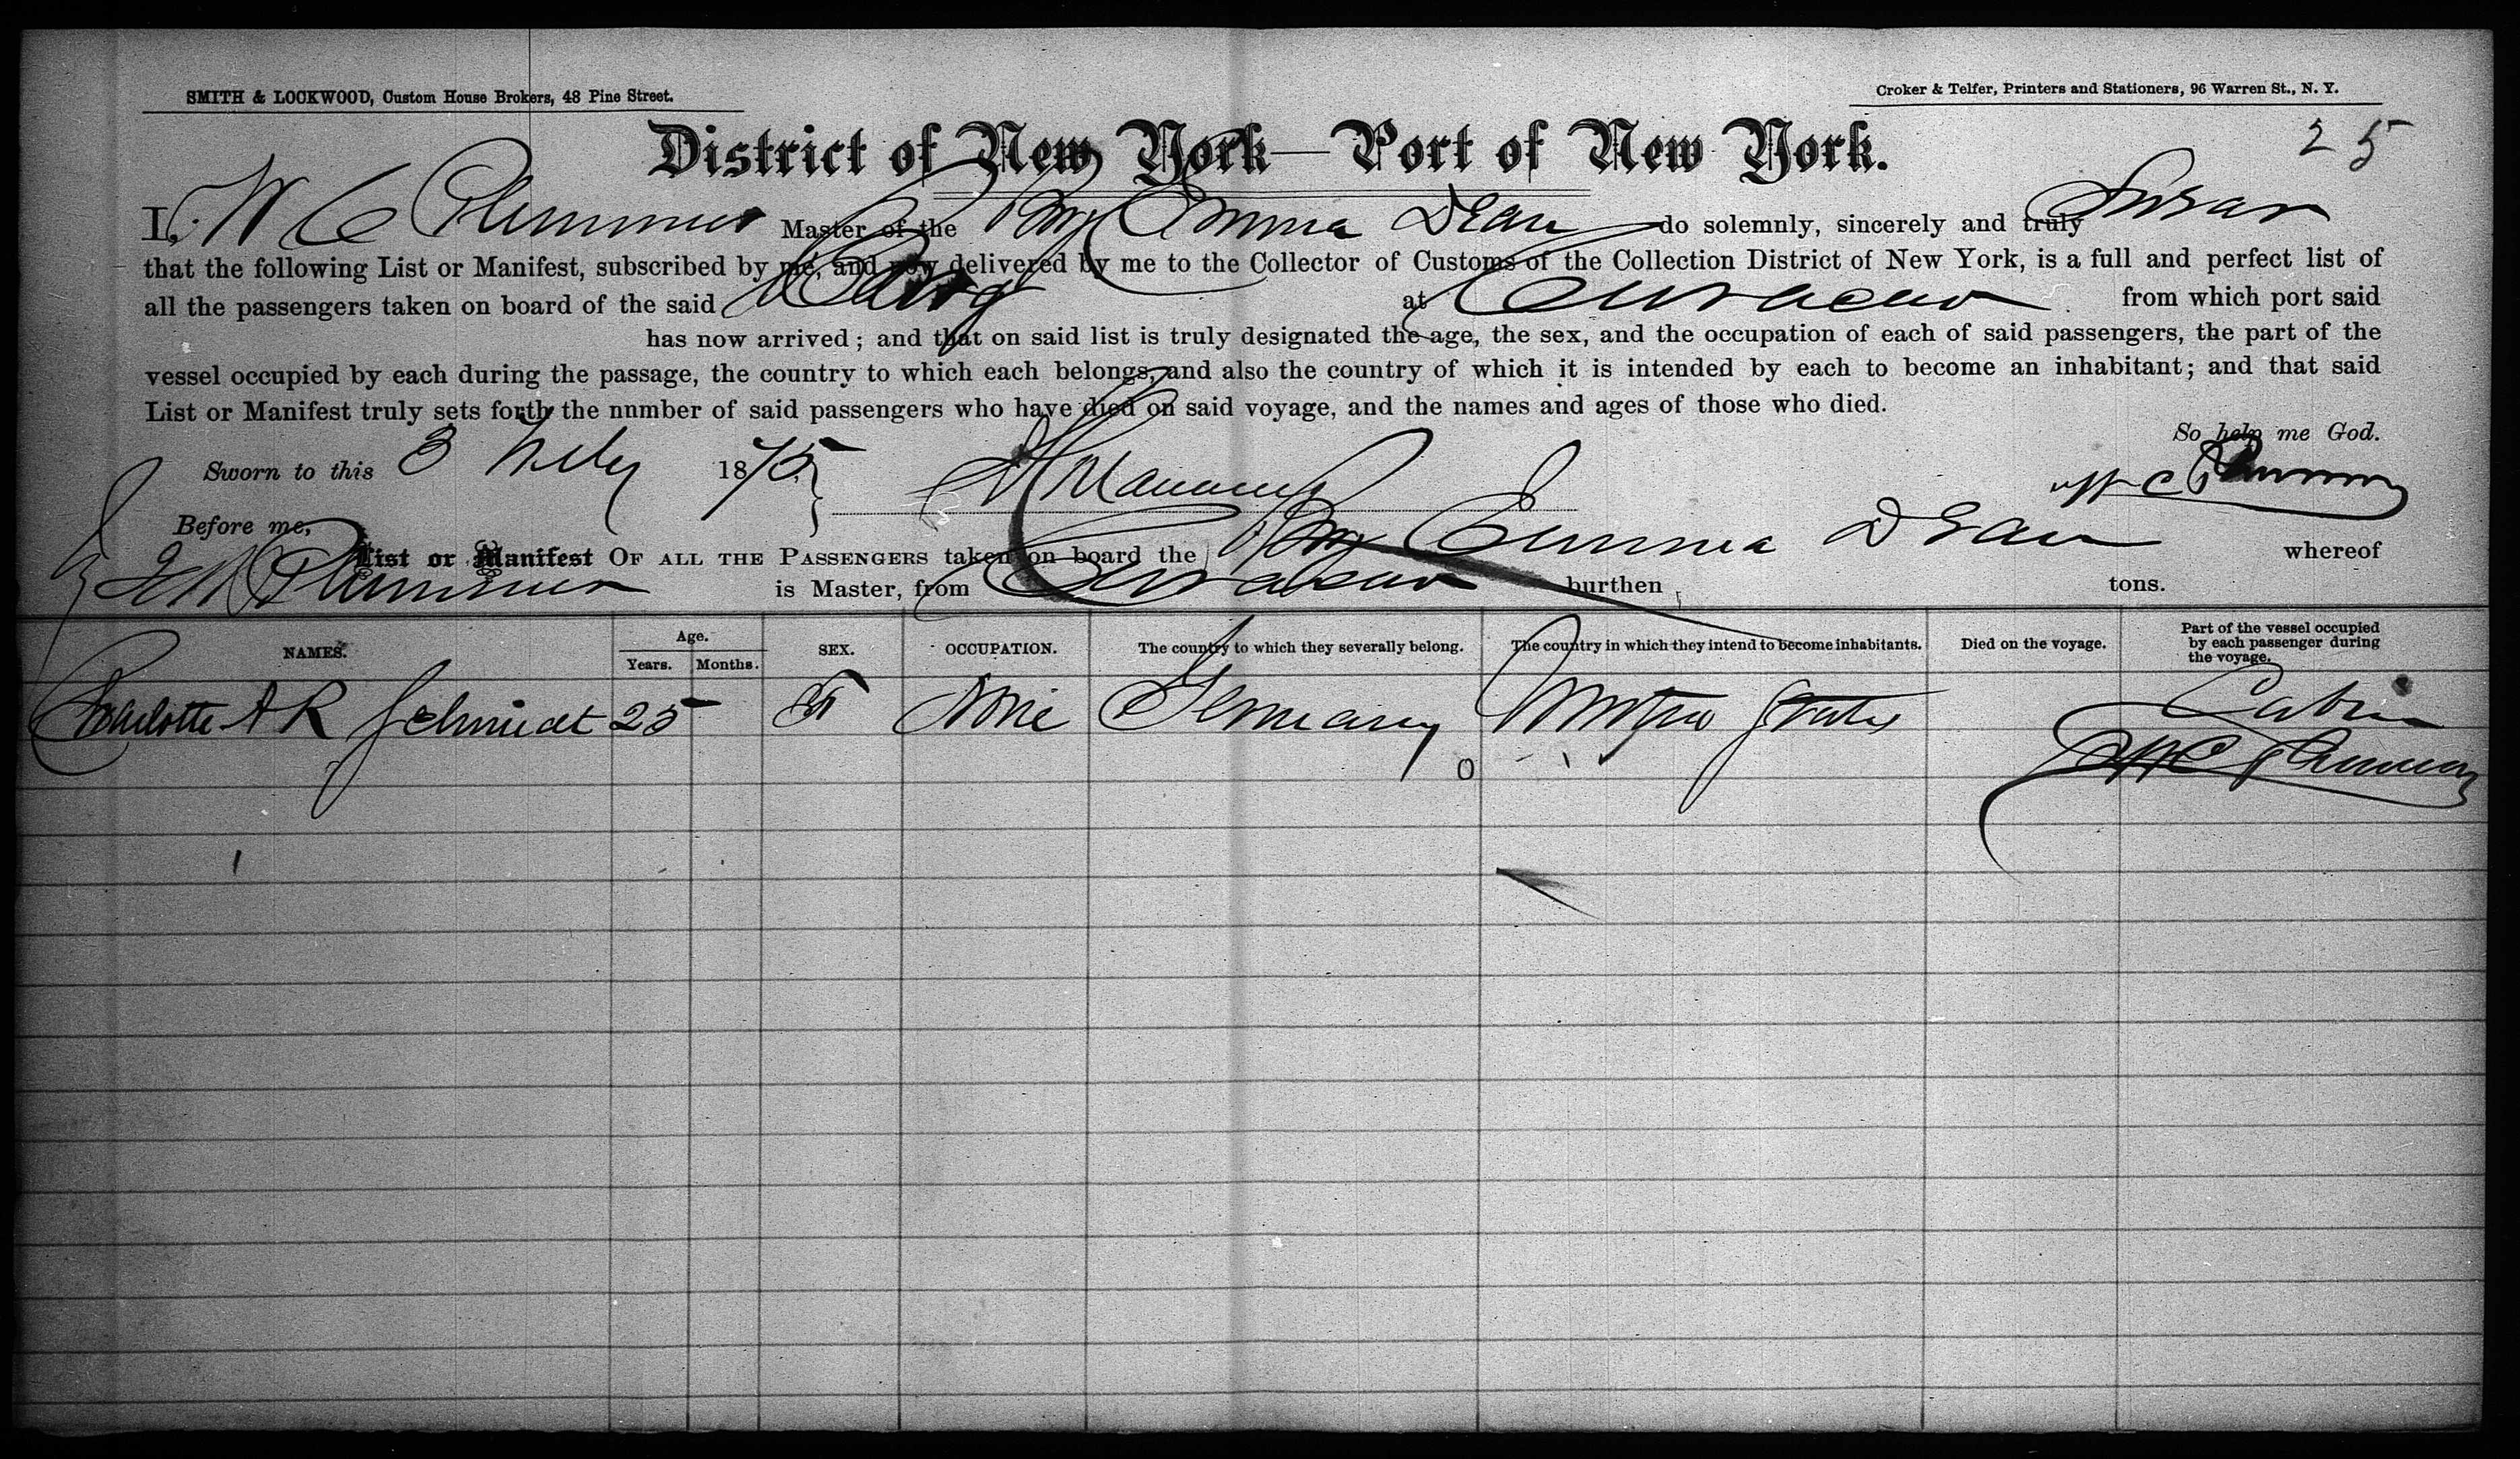 SMITH & LOCKWOOD, Custom House Brokers, 48 Pine Street.
Croker & Telfer, Printers and Stationers, 96 Warren St., N. Y.
District of New York—Port of New York.
25
I, W C Plummer Master of the Brig Emma Dean do solemnly, sincerely and truly Swear
that the following List or Manifest, subscribed by me, and now delivered by me to the Collector of Customs of the Collection District of New York, is a full and perfect list of
all the passengers taken on board of the said Brig at Curacao from which port said
has now arrived; and that on said list is truly designated the age, the sex, and the occupation of each of said passengers, the part of the
vessel occupied by each during the passage, the country to which each belongs, and also the country of which it is intended by each to become an inhabitant; and that said
List or Manifest truly sets forth the nnmber of said passengers who have died on said voyage, and the names and ages of those who died.
So help me God.
Sworn to this 3 Feby 1875
W C Plummer
Before me,
List or Manifest OF ALL THE PASSENGERS taken on board the Brig Emma Dean whereof
Plummer is Master, from Curacao burthen tons.
NAMES. Age. Years. Months. SEX. OCCUPATION. The country to which they severally belong. The country in which they intend to become inhabitants. Died on the voyage. Part of the vessel occupied by each passenger during the voyage.
Charlotte A R Schmidt 25 F None Germany United States Cabin
W C Plummer